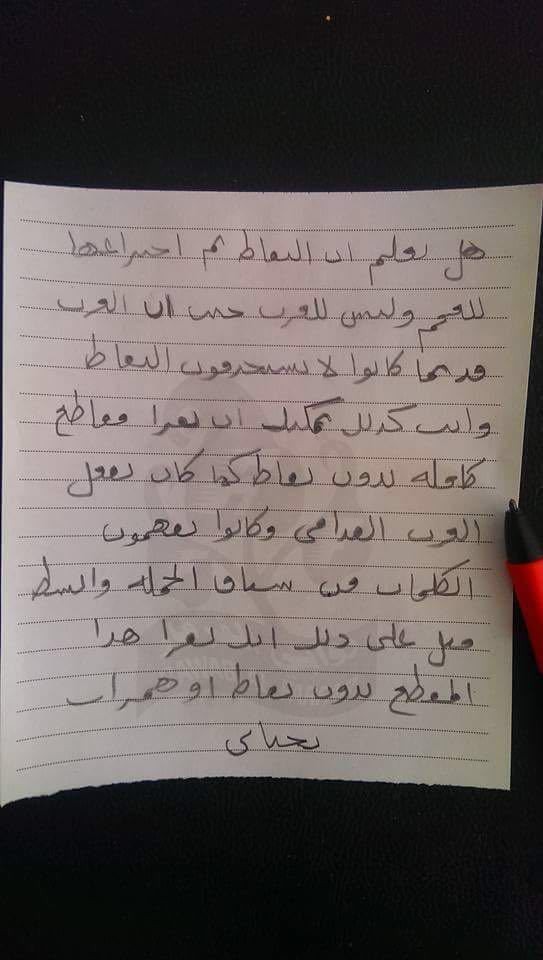 هل تعلم ان النقاط تم اختراعها
للعجم وليس للعرب حيث ان العرب
قديما كانوا لا يستخدمون النقاط
وانت كذلك يمكنك ان تقرا مقاطع
كامله بدون نقاط كما كان يفعل
العرب القدامى وكانوا يفهمون
الكلمات من سياق الجمله وابسط
مثل على ذلك انك تقرا هذا
المقطع بدون نقاط او همزات
تحياتى